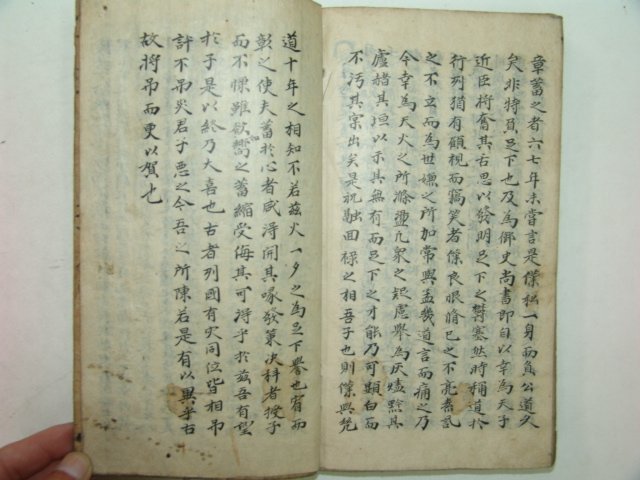 章蓄之者六七年未嘗言是僕私一身而負公道久
矣非特負足下也及為御史尚書郎自以幸為天子
近臣將奮其舌思以發明足下之鬱塞然時稱道於
行列猶有顧視而竊笑者僕良恨脩己之不亮素譽
之不立而為世嫌之所加常與孟幾道言而痛之乃
今幸為天火之所滌盪凡衆之疑慮舉為灰埃黔其
廬赭其垣以示其無有而足下之才能乃可顯白而
不汚其實出矣是祝融回祿之相吾子也則僕與幾
道十年之相知不若茲火一夕之為足下譽也宥而
彰之使夫蓄於心者咸得開其喙發策决科者授子
而不慄雖欲嚮之蓄縮受侮其可得乎於茲吾有望
於子是以終乃大喜也古者列國有災同位皆相吊
許不吊災君子惡之今吾之所陳若是有以異乎古
故將吊而更以賀也